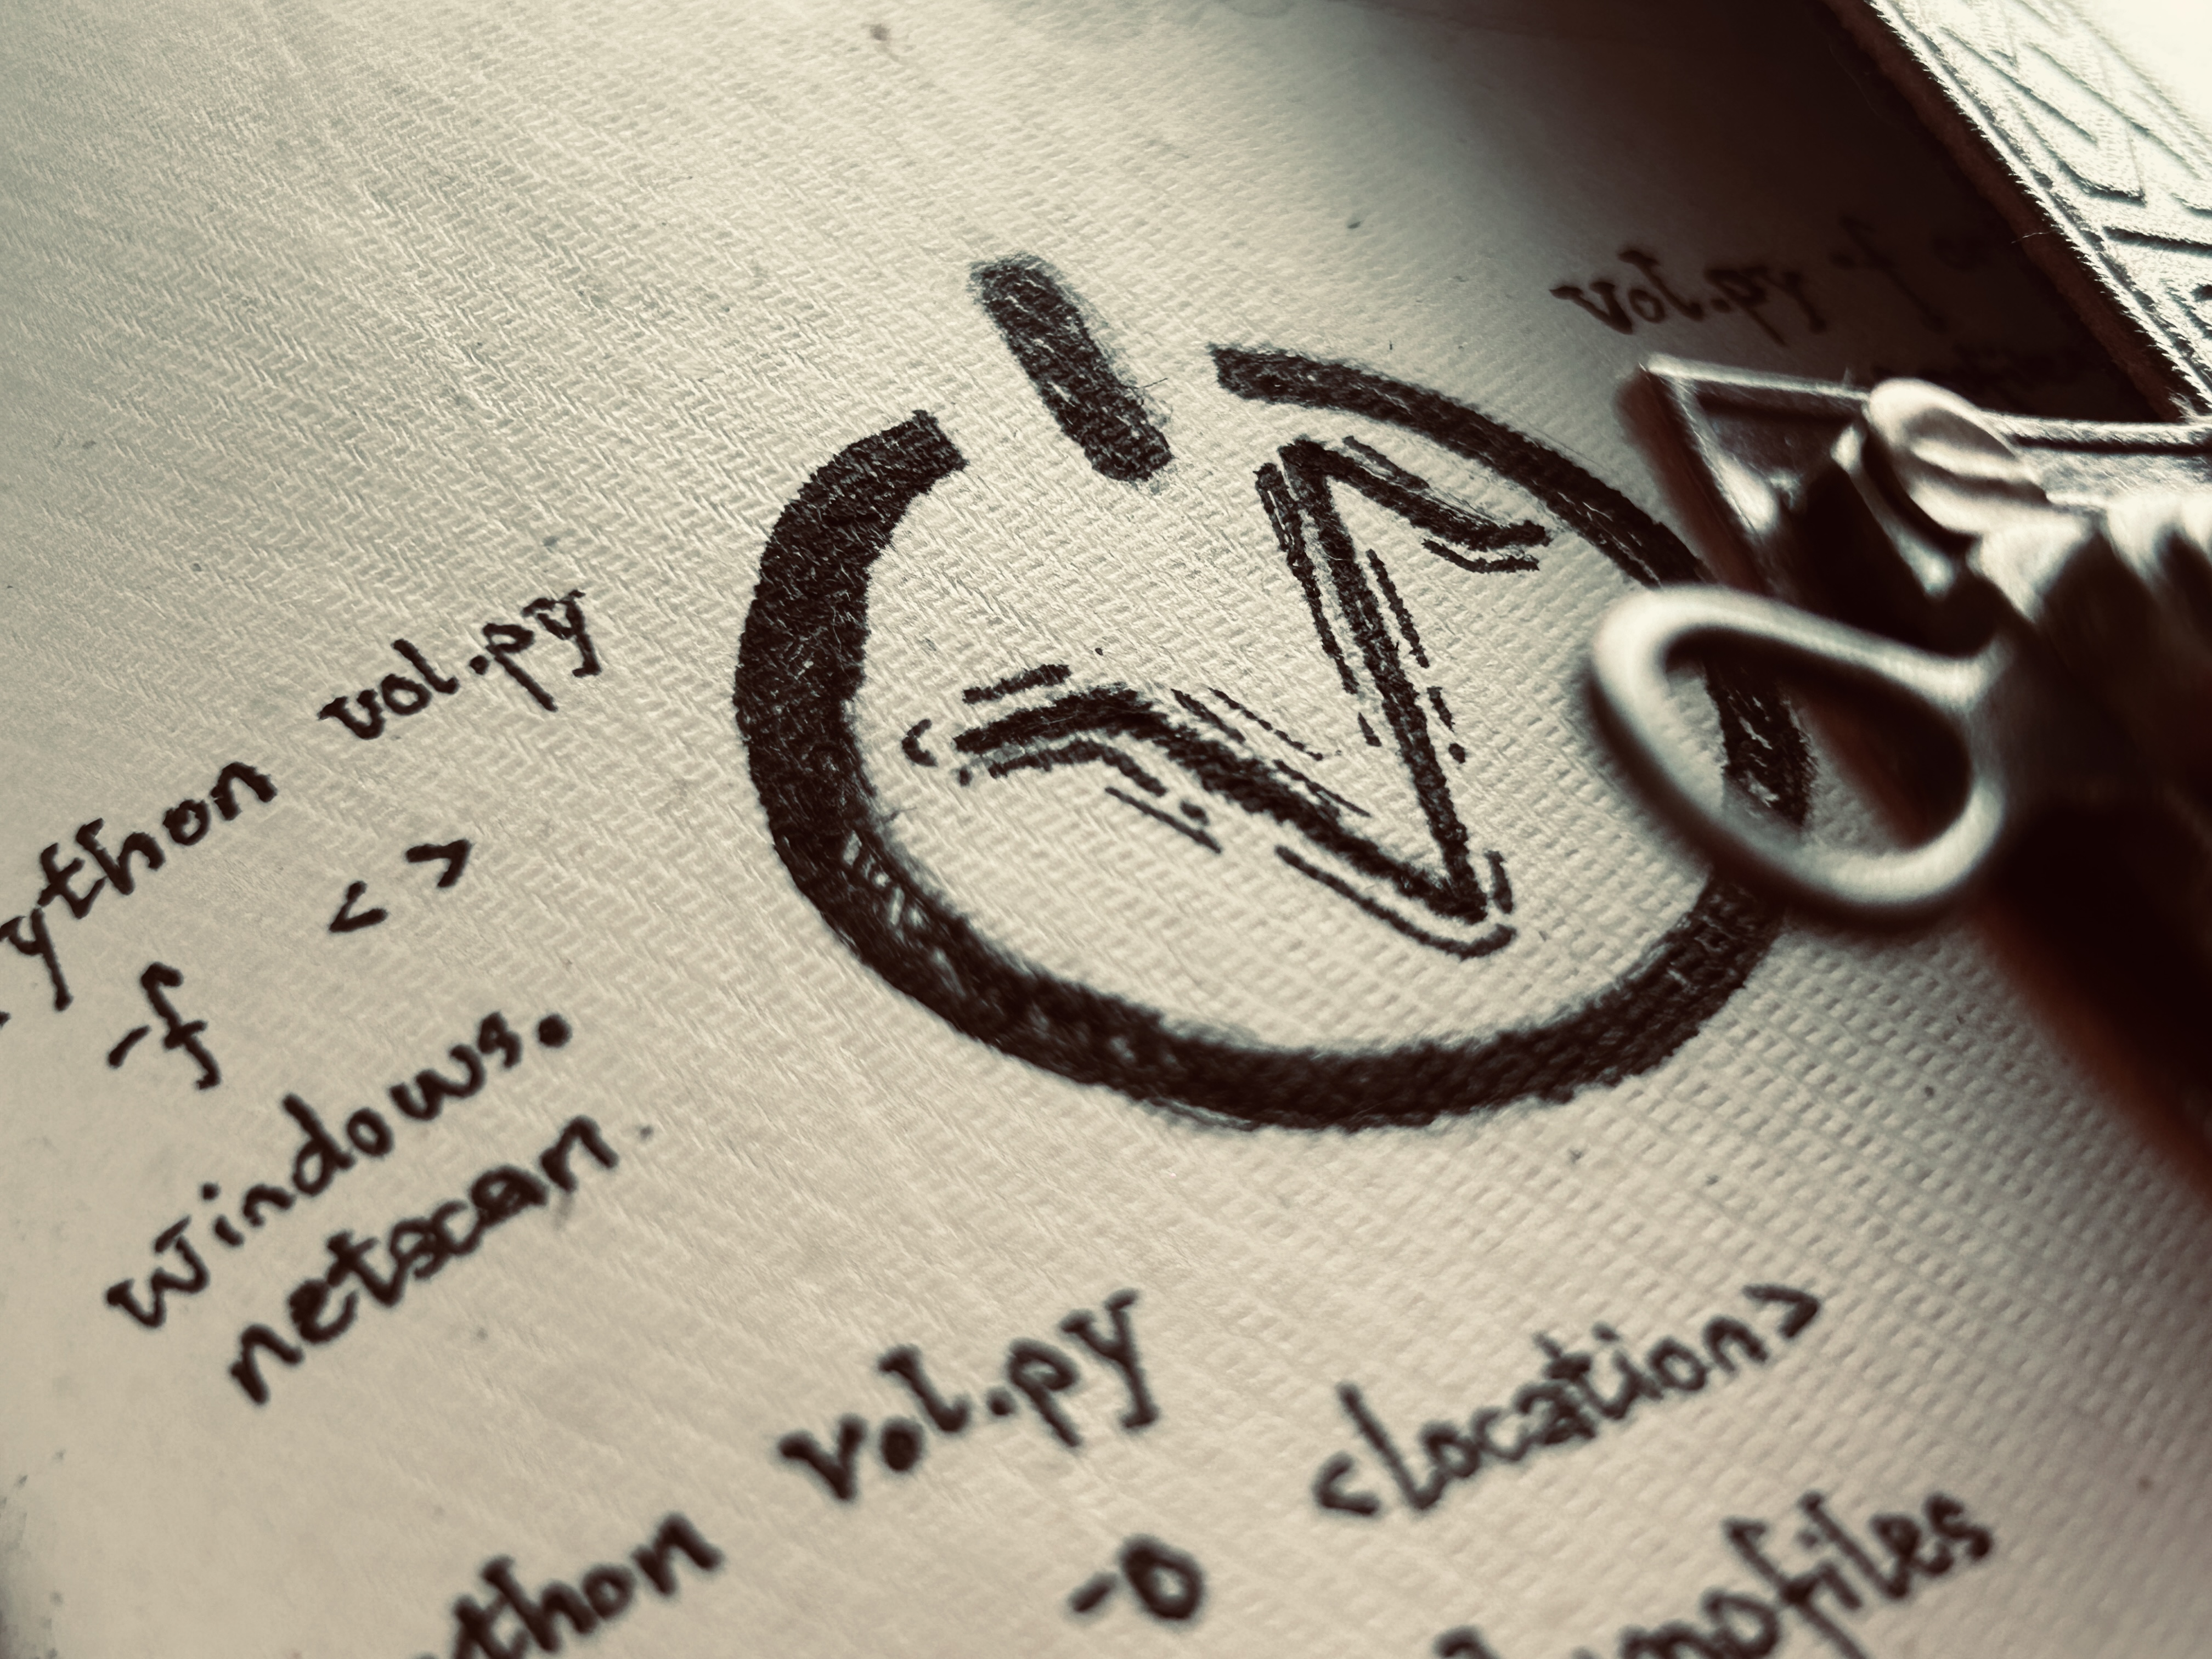 vol.py -f
ython vol.py
-f < >
windows.
netscan
thon vol.py
-o <location>
mpfiles